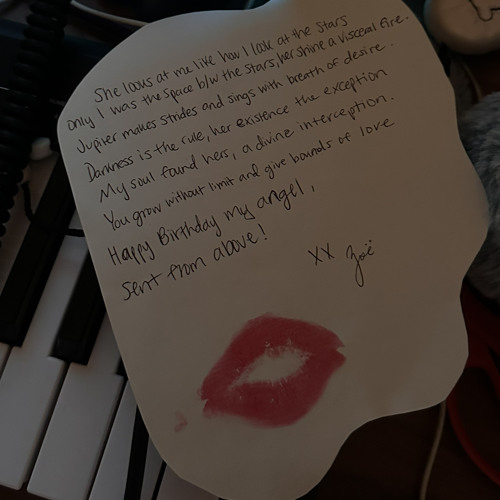 She looks at me like how I look at the stars
only I was the space b/w the stars, her shine a visceral fire.
Jupiter makes strides and sings with breath of desire.
Darkness is the rule, her existence the exception
My soul found hers, a divine interception.
You grow without limit and give bounds of love
Happy Birthday my angel,
Sent from above!
XX Zoë